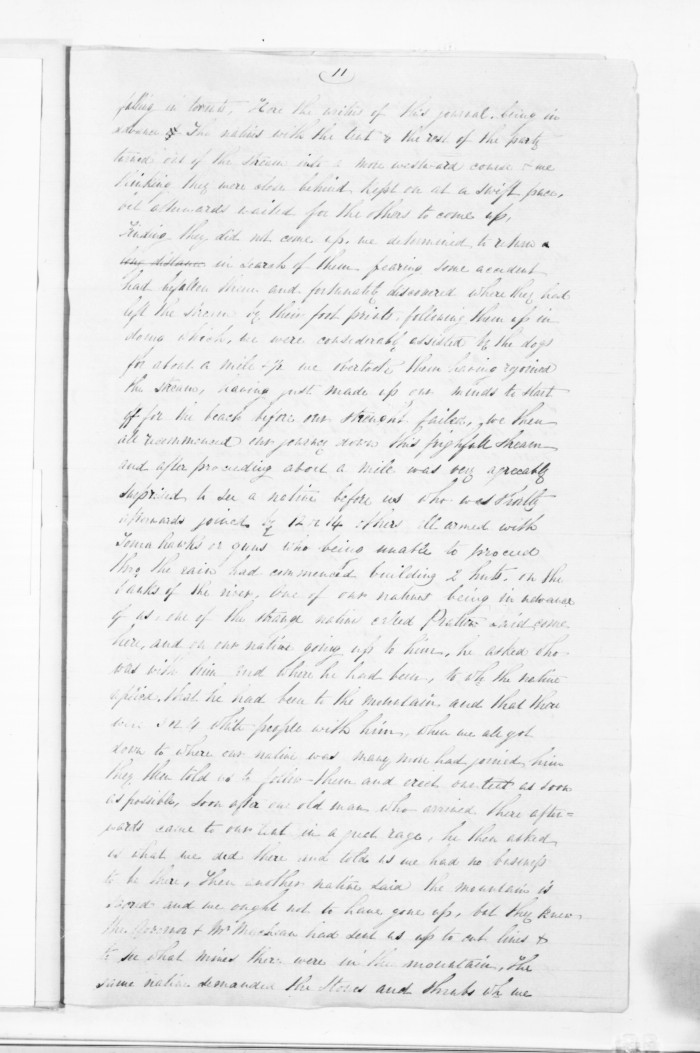 11
falling in torrents. Here the writer of this journal being in
advance & the natives with the tent & the rest of the party
turned out of the stream into a more westward course & we
thinking they were close behind, kept on at a swift pace,
out afterwards waited for the others to come up,
Finding they did not come up, we determined to return a
long distance in search of them fearing some accident
had befallen them and fortunately discovered where they had
left the stream by their foot prints, following them up in
doing which, we were considerably assisted by the dogs
for about a mile & ½ we overtook them having rejoined
the stream, having just made up our minds to start
off for the beach before our strenght failed, we then
all recommenced our journey down this frightfull stream
and after proceeding about a mile was very agreeably
surprised to see a native before us who was shortly
afterwards joined by 12 or 14 others all armed with
Tomahawks or guns who being unable to proceed
throg the rain had commenced building 2 huts, on the
banks of the river, One of our natives being in advance
of us, one of the strange natives called said come
here, and on our native going up to him, he asked who
was with him and where he had been, to wh the native
replied, that he had been to the mountain and that there
were 3 or 4 white people with him, when we all got
down to where our native was many more had joined him
they then told us to follow them and erect our tent as soon
as possible, soon after one old man who arrived there after=
wards came to our tent in a great rage, he then asked
us what we did there and told us we had no business
to be there, Then another native said the mountain is
sacred and we ought not to have gone up, but they knew
the Governor & Mr had sent us up to cut lines &
to see what mines there were in the mountain, The
same native demanded the stones and shrubs wh we